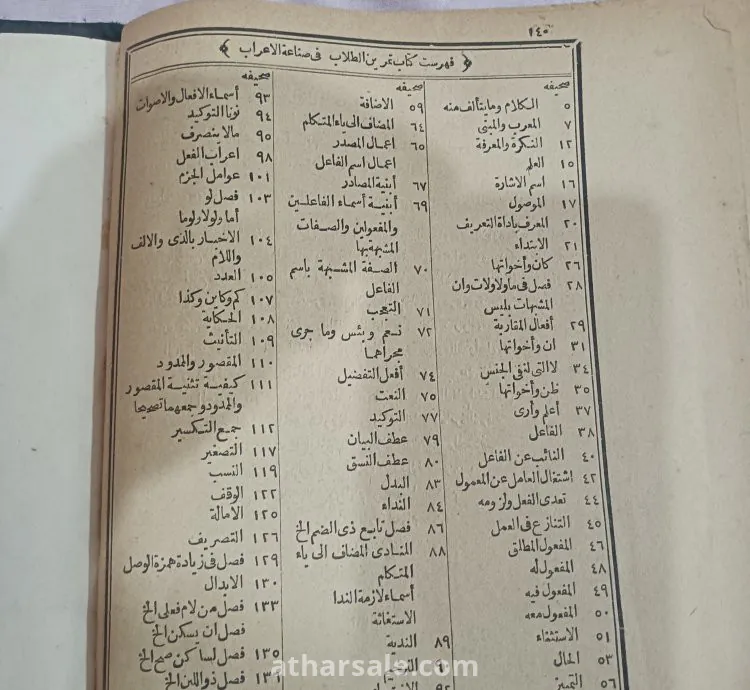 ١٤٠
﴿ فهرست كتاب تمرين الطلاب فى صناعة الاعراب ﴾
صحيفه
٥ الكلام وما يتألف منه
٧ المعرب والمبنى
١٢ النكرة والمعرفة
١٥ العلم
١٦ اسم الاشارة
١٧ الموصول
٢٠ المعرف باداة التعريف
٢١ الابتداء
٢٦ كان وأخواتها
٢٨ فصل فى ما ولا ولات وان
المشبهات بليس
٢٩ أفعال المقاربة
٣١ ان وأخواتها
٣٤ لا التى لنفى الجنس
٣٥ ظن وأخواتها
٣٧ أعلم وأرى
٣٨ الفاعل
٤٠ النائب عن الفاعل
٤٢ اشتغال العامل عن المعمول
٤٤ تعدى الفعل ولزومه
٤٥ التنازع فى العمل
٤٦ المفعول المطلق
٤٨ المفعول له
٤٩ المفعول فيه
٥٠ المفعول معه
٥١ الاستثناء
٥٣ الحال
٥٦ التمييز
صحيفه
٥٩ الاضافة
٦٤ المضاف الى ياء المتكلم
٦٥ اعمال المصدر
اعمال اسم الفاعل
٦٧ أبنية المصادر
٦٩ أبنية أسماء الفاعلين
والمفعولين والصفات
المشبهة بها
٧٠ الصفة المشبهة باسم
الفاعل
٧١ التعجب
٧٢ نعم وبئس وما جرى
مجراهما
٧٤ أفعل التفضيل
٧٥ النعت
٧٧ التوكيد
٧٩ عطف البيان
٨٠ عطف النسق
٨٣ البدل
٨٤ النداء
٨٦ فصل تابع ذى الضم الخ
٨٨ المنادى المضاف الى ياء
المتكلم
أسماء لازمة الندا
الاستغاثة
٨٩ الندبة
٩٢
صحيفه
٩٣ أسماء الافعال والاصوات
٩٤ نونا التوكيد
٩٥ مالا ينصرف
٩٨ اعراب الفعل
١٠١ عوامل الجزم
١٠٣ فصل لو
أما ولولا ولوما
١٠٤ الاخبار بالذى والالف
واللام
١٠٥ العدد
١٠٧ كم وكاين وكذا
١٠٨ الحكاية
١٠٩ التأنيث
١١٠ المقصور والمدود
١١١ كيفية تثنية المقصور
والمدود وجمعهما تصحيحا
١١٢ جمع التكسير
١١٧ التصغير
١١٩ النسب
١٢٢ الوقف
١٢٥ الامالة
١٢٦ التصريف
١٢٩ فصل فى زيادة همزة الوصل
١٣٠ الابدال
١٣٣ فصل من لام فعلى الخ
فصل ان يسكن الخ
١٣٥ فصل لساكن صح الخ
١٣٦ فصل ذو اللين الخ
atharsala.com